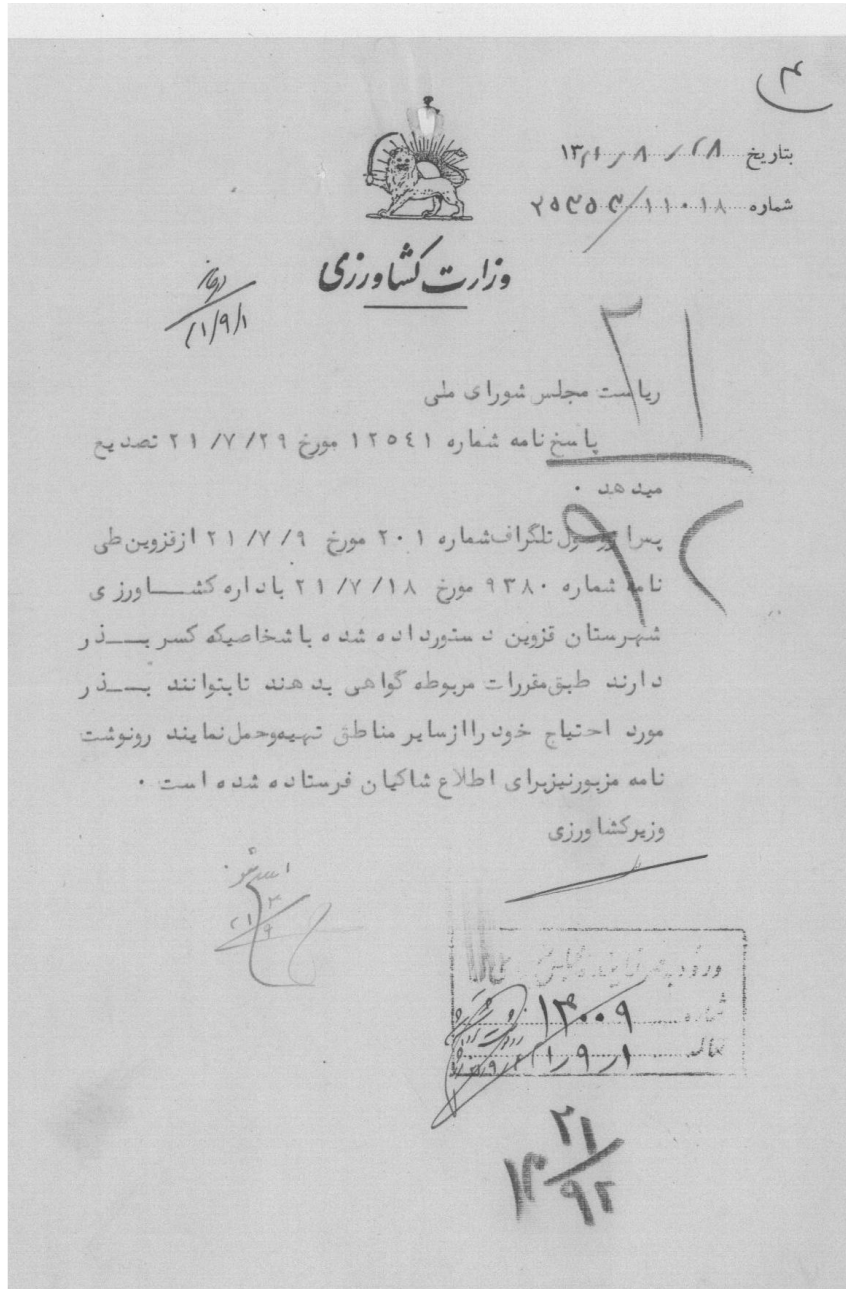 ۴
بتاریخ ۲۸ / ۸ / ۱۳۲۱
شماره ۱۱۰۱۸ / ۲۵۴۵۳
وزارت کشاورزی
۲۱/۹/۱
ریاست مجلس شورای ملی
پاسخ نامه شماره ۱۲۵۴۱ مورخ ۲۱/۷/۲۹ تصدیع
میدهد .
پس از وصول تلگراف شماره ۲۰۱ مورخ ۲۱/۷/۹ از قزوین طی
نامه شماره ۹۳۸۰ مورخ ۲۱/۷/۱۸ باداره کشاورزی
شهرستان قزوین دستور داده شده باشخاصیکه کسر بذر
دارند طبق مقررات مربوطه گواهی بدهند تا بتوانند بذر
مورد احتیاج خود را از سایر مناطق تهیه و حمل نمایند رونوشت
نامه مزبور نیز برای اطلاع شاکیان فرستاده شده است .
وزیر کشاورزی
شماره ۱۳۰۰۹
۲۱/۹/۱
۲۱
۹۲